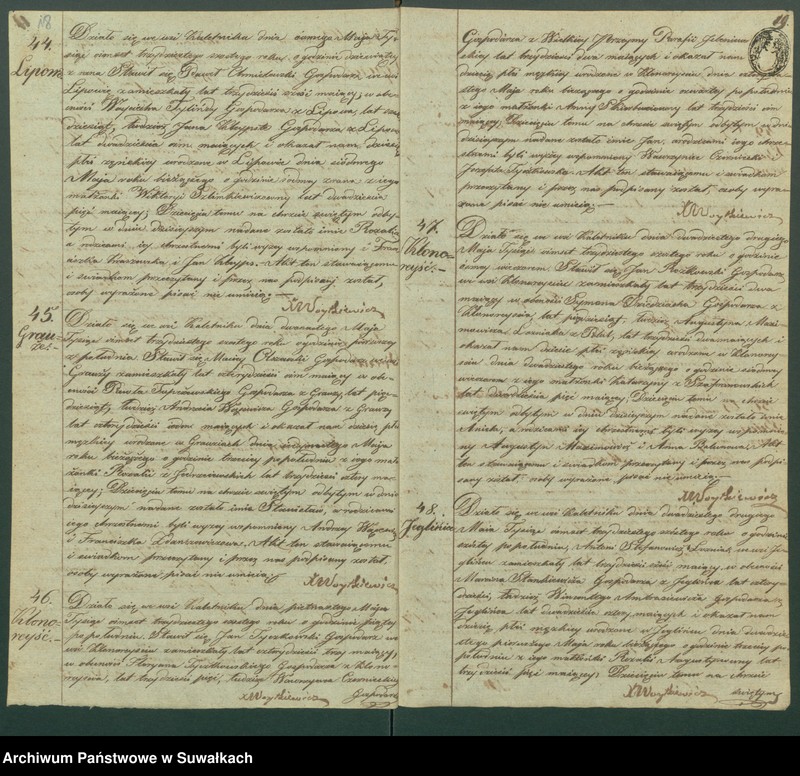 18
44.
Lipowo
Działo się we wsi Kaletniku dnia ósmego Maja Ty-
siąc ośmset trzydziestego szóstego roku o godzinie dziewiątej
z rana Stawił się Paweł Chmielewski Gospodarz we wsi
Lipowie zamieszkały lat trzydzieści sześć mający, w obe-
cności Wojciecha Gospodarza z Lipowa, lat
dziesiąt, tudzież Jana Chłypita Gospodarza z Lipowa
lat dwadzieścia ośm mających i okazał nam dziecię
płci żyńskiej urodzone w Lipowie dnia siódmego
Maja roku bieżącego o godzinie siódmej z rana z jego
małżonki Wiktoryi lat dwadzieścia
pięć mającej; Dziecięciu temu na chrzcie świętym odby-
tym w dniu dzisiejszym nadane zostało imie Rozalia
a rodzicami jej chrzestnemi byli wyżej wspomniony i Fran-
ciszka i Jan Chłypit. Akt ten stawającemu
i świadkom przeczytany i przez nas podpisany został,
osoby wyrażone pisać nie umieją.
X Woytkiewicz
45.
Grau-
ze.-
Działo się we wsi Kaletniku dnia dwunastego Maja
Tysiąc ośmset trzydziestego szóstego roku o godzinie pierwszej
z południa Stawił się Maciej Olszewski Gospodarz we wsi
Grauzy zamieszkały lat czterdzieści ośm mający w obe-
cności Pawła Gospodarza z Grauz, lat pięć-
dziesiąt, tudzież Andrzeia Gospodarza z Grauz
lat czterdzieści ośm mających i okazał nam dziecię płci
męzkiej urodzone w Grauzach dnia Maja
roku bieżącego o godzinie trzeciej popołudniu z jego mał-
żonki Rozalii z lat trzydzieści cztery ma-
jącej; Dziecięciu temu na chrzcie świętym odbytym w dniu
dzisiejszym nadane zostało imie Stanisław, a rodzicami
jego chrzestnemi byli wyżej wspomniony Andrzej
i Franciszka. Akt ten stawającemu
i świadkom przeczytany i przez nas podpisany został,
osoby wyrażone pisać nie umieją.
X Woytkiewicz
46.
Kłono-
reyść.-
Działo się we wsi Kaletniku dnia piętnastego Maja
Tysiąc ośmset trzydziestego szóstego roku o godzinie piątej
popołudniu, Stawił się Jan Tyczkowski Gospodarz we
wsi Kłonoreyściu zamieszkały lat czterdzieści trzy mający,
w obecności Floryana Tyczkowskiego Gospodarza z Kłono-
reyścia, lat trzydzieści pięć, tudzież Wawrzyńca Czerwieckiego
X Woytkiewicz Gospodarza
19.
Gospodarza z Wielkiey Parafii
lat trzydzieści dwa mających i okazał nam
dziecię płci męzkiej urodzone w Kłonoreyściu dnia
Maja roku bieżącego o godzinie czwartej popołudniu
z jego małżonki Anny lat trzydzieści ośm
mającej; Dziecięciu temu na chrzcie świętym odbytym w dniu
dzisiejszym nadane zostało imie Jan, a rodzicami jego chrze-
stnemi byli wyżej wspomniony Wawrzyniec Czerwiecki
i Józefata Tyczkowska. Akt ten stawającemu i świadkom
przeczytany i przez nas podpisany został, osoby wyra-
żone pisać nie umieją.
X Woytkiewicz
47.
Kłono-
reyść.-
Działo się we wsi Kaletniku dnia dwudziestego drugiego
Maja Tysiąc ośmset trzydziestego szóstego roku o godzinie
ósmej wieczorem. Stawił się Jan Gospodarz
we wsi Kłonoreyściu zamieszkały lat trzydzieści dwa
mający w obecności Szymona Gospodarza z
Kłonoreyścia, lat pięćdziesiąt, tudzież Augustyna Mazi-
mowicza z lat trzydzieści dwa mających i
okazał nam dziecię płci żyńskiej urodzone w Kłonorey-
ściu dnia dwudziestego roku bieżącego o godzinie siódmej
wieczorem z jego małżonki Katarzyny z
lat dwadzieścia pięć mającej; Dziecięciu temu na chrzcie
świętym odbytym w dniu dzisiejszym nadane zostało imie
Aniela, a rodzicami jej chrzestnemi byli wyżej wspomnio-
ny Augustyn Mazimowicz i Anna. Akt
ten stawającemu i świadkom przeczytany i przez nas podpi-
sany został, osoby wyrażone pisać nie umieją.
X Woytkiewicz
48.
Jegliniec
Działo się we wsi Kaletniku dnia dwudziestego drugiego
Maja Tysiąc ośmset trzydziestego szóstego roku o godzinie
szóstej popołudniu, Antoni Stefanowicz we wsi Je-
glińcu zamieszkały lat trzydzieści sześć mający w obecności
Marcina Stankiewicza Gospodarza z Jeglińca lat czter-
dzieści, tudzież Wincentego Ambrożewicza Gospodarza z
Jeglińca lat dwadzieścia cztery mających i okazał nam
dziecię płci męzkiej urodzone w Jeglińcu dnia dwudzie-
stego pierwszego Maja roku bieżącego o godzinie trzeciej po-
południu z jego małżonki Rozalii lat
trzydzieści pięć mającej; Dziecięciu temu na chrzcie
X Woytkiewicz świętym
Archiwum Państwowe w Suwałkach